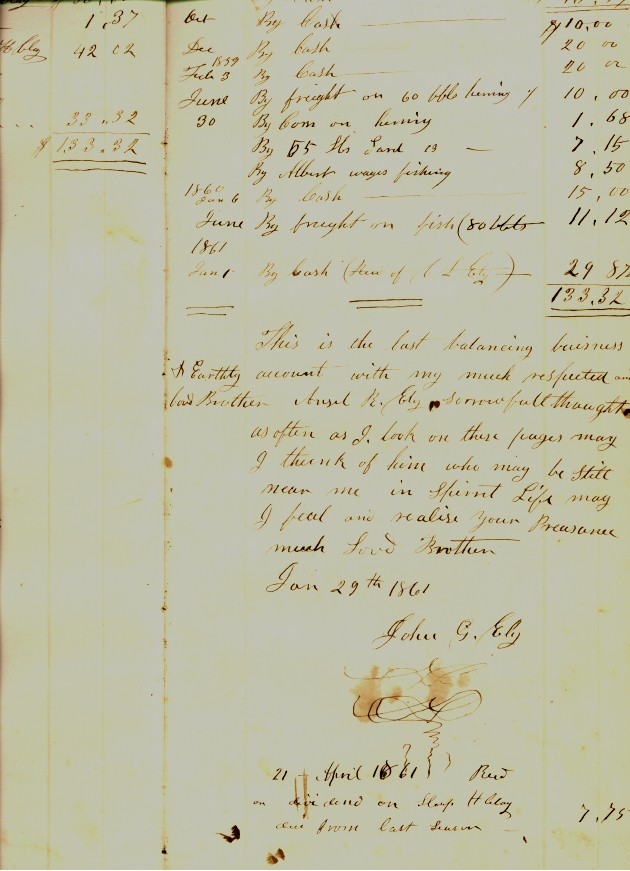 1.37
H. Ely 42 02
33.32
$ 133.32
Oct By Cash $10,00
Dec By Cash 20 00
1859
Feb 3 By Cash 20 00
June By freight on 60 bbls herring 10.00
30 By Com on herring 1.68
By 55 lbs Lard 13 7.15
By Albert wages fishing 8,50
1860
Jan 6 By Cash 15,00
June By freight on fish (80 bbls 11,12
1861
Jan 1 By Cash ( of C L Ely) 29 87
133.32
This is the last balancing buisness
& Earthly account with my much respected and
lovd Brother Ansel R. Ely sorrowfull thought
as often as I look on these pages may
I theenk of him who may be still
near me in Spirrit Life may
I feal and realise your Preasance
much Lovd Brother
Jan 29th 1861
John G. Ely
21 April 1861 Recd
on dividend on Sloop H Clay
due from last Season 7.75